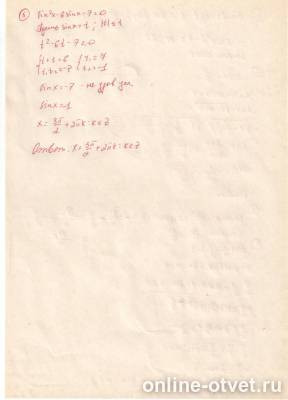 5) sin²x-6sinx-7=0
Пусть sinx=t; |t|≤1
t²-6t-7=0
t₁+t₂=6 t₁=7
t₁·t₂=-7 t₂=-1
sinx=-7 - не удов усл.
sinx=-1
x=3π/2+2πk; k∈Z
Ответ: x=3π/2+2πk; k∈Z
online-otvet.ru